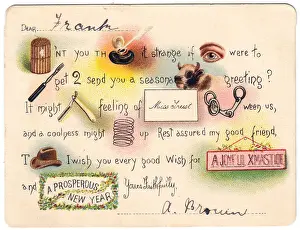 DEAR Frank
NT YOU TH it strange if were to
get 2 send you a season greeting?
It might feeling of Miss Trust ween us,
and a coolness might up Rest assured my good friend,
T I wish you every good Wish for A JOYFUL XMASTIDE
and A PROSPEROUS NEW YEAR Yours Faithfully,
A. Brown